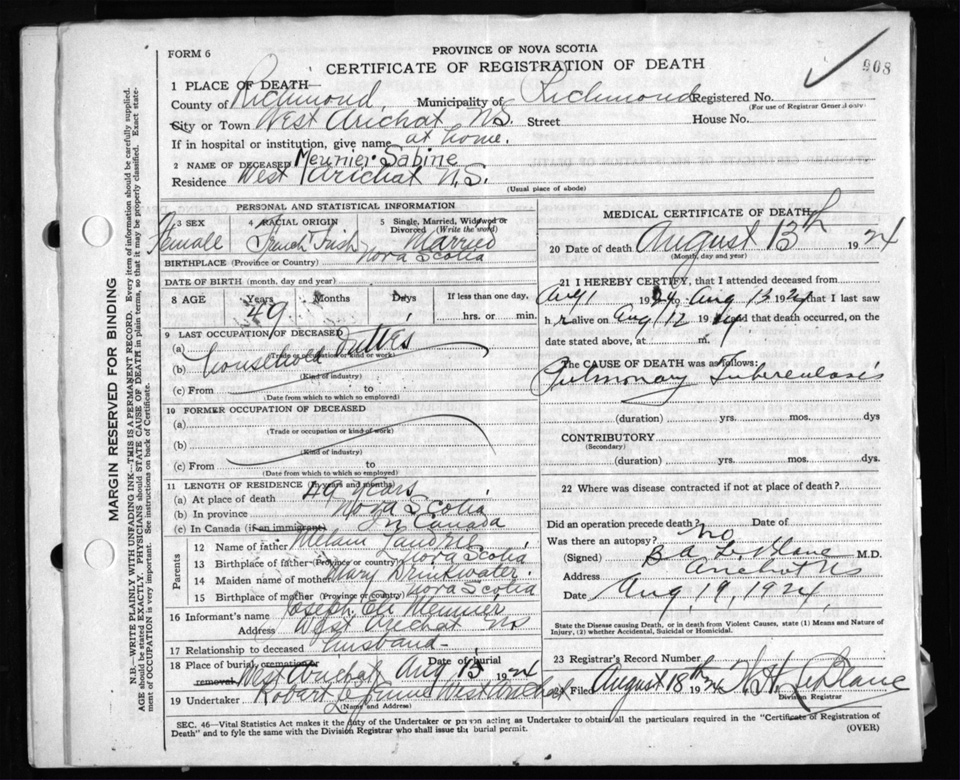 PROVINCE OF NOVA SCOTIA
FORM 6
CERTIFICATE OF REGISTRATION OF DEATH
908
1 PLACE OF DEATH—
County of Richmond, Municipality of Richmond Registered No.
(For use of Registrar General only)
City or Town West Arichat N.S. Street House No.
If in hospital or institution, give name at home.
2 NAME OF DECEASED Meunier Sabine
Residence West Arichat N.S.
(Usual place of abode)
PERSONAL AND STATISTICAL INFORMATION
3 SEX 4 RACIAL ORIGIN 5 Single, Married, Widowed or Divorced (Write the word)
Female French Irish Married
BIRTHPLACE (Province or Country) Nova Scotia
DATE OF BIRTH (month, day and year)
8 AGE Years Months Days If less than one day,
49 hrs. or min.
9 LAST OCCUPATION OF DECEASED
(a) household Duties
(Trade or occupation or kind or work)
(b)
(Kind of industry)
(c) From to
(Date from which to which so employed)
10 FORMER OCCUPATION OF DECEASED
(a)
(Trade or occupation or kind of work)
(b)
(Kind of industry)
(c) From to
(Date from which to which so employed)
11 LENGTH OF RESIDENCE (In years and months)
(a) At place of death 49 years
(b) In province Nova Scotia
(c) In Canada (if an immigrant) In Canada
Parents
12 Name of father Melani Landrie
13 Birthplace of father (Province or country) Nova Scotia
14 Maiden name of mother Mary Drinkwater.
15 Birthplace of mother (Province or country) Nova Scotia
16 Informant's name Joseph Eli Meunier
Address West Arichat NS
17 Relationship to deceased Husband
18 Place of burial, cremation or removal West Arichat Date of burial Aug 15 1924
19 Undertaker Robart West Arichat
(Name and Address)
MEDICAL CERTIFICATE OF DEATH
20 Date of death August 13th 1924
(Month, day and year)
21 I HEREBY CERTIFY, that I attended deceased from
Aug 1 1924 to Aug 13 1924 that I last saw
her alive on Aug 12 1924 and that death occurred, on the
date stated above, at m.
The CAUSE OF DEATH was as follows:
Pulmonary Tuberculosis
(duration) yrs. mos. dys
CONTRIBUTORY
(Secondary)
(duration) yrs. mos. dys.
22 Where was disease contracted if not at place of death?
Did an operation precede death? no Date of
Was there an autopsy?
(Signed) B A LeBlanc M.D.
Address Arichat NS
Date Aug, 19, 1924,
State the Disease causing Death, or in death from Violent Causes, state (1) Means and Nature of Injury, (2) whether Accidental, Suicidal or Homicidal.
23 Registrar's Record Number
Filed August 18th 1924 LeBlanc
Division Registrar
SEC. 46—Vital Statistics Act makes it the duty of the Undertaker or person acting as Undertaker to obtain all the particulars required in the "Certificate of Registration of
Death" and to fyle the same with the Division Registrar who shall issue the burial permit.
(OVER)
MARGIN RESERVED FOR BINDING
N.B.—WRITE PLAINLY WITH UNFADING INK—THIS IS A PERMANENT RECORD. Every item of information should be carefully supplied.
AGE should be stated EXACTLY. PHYSICIANS should STATE CAUSE OF DEATH in plain terms, so that it may be properly classified. Exact statement of OCCUPATION is very important. See instructions on back of Certificate.